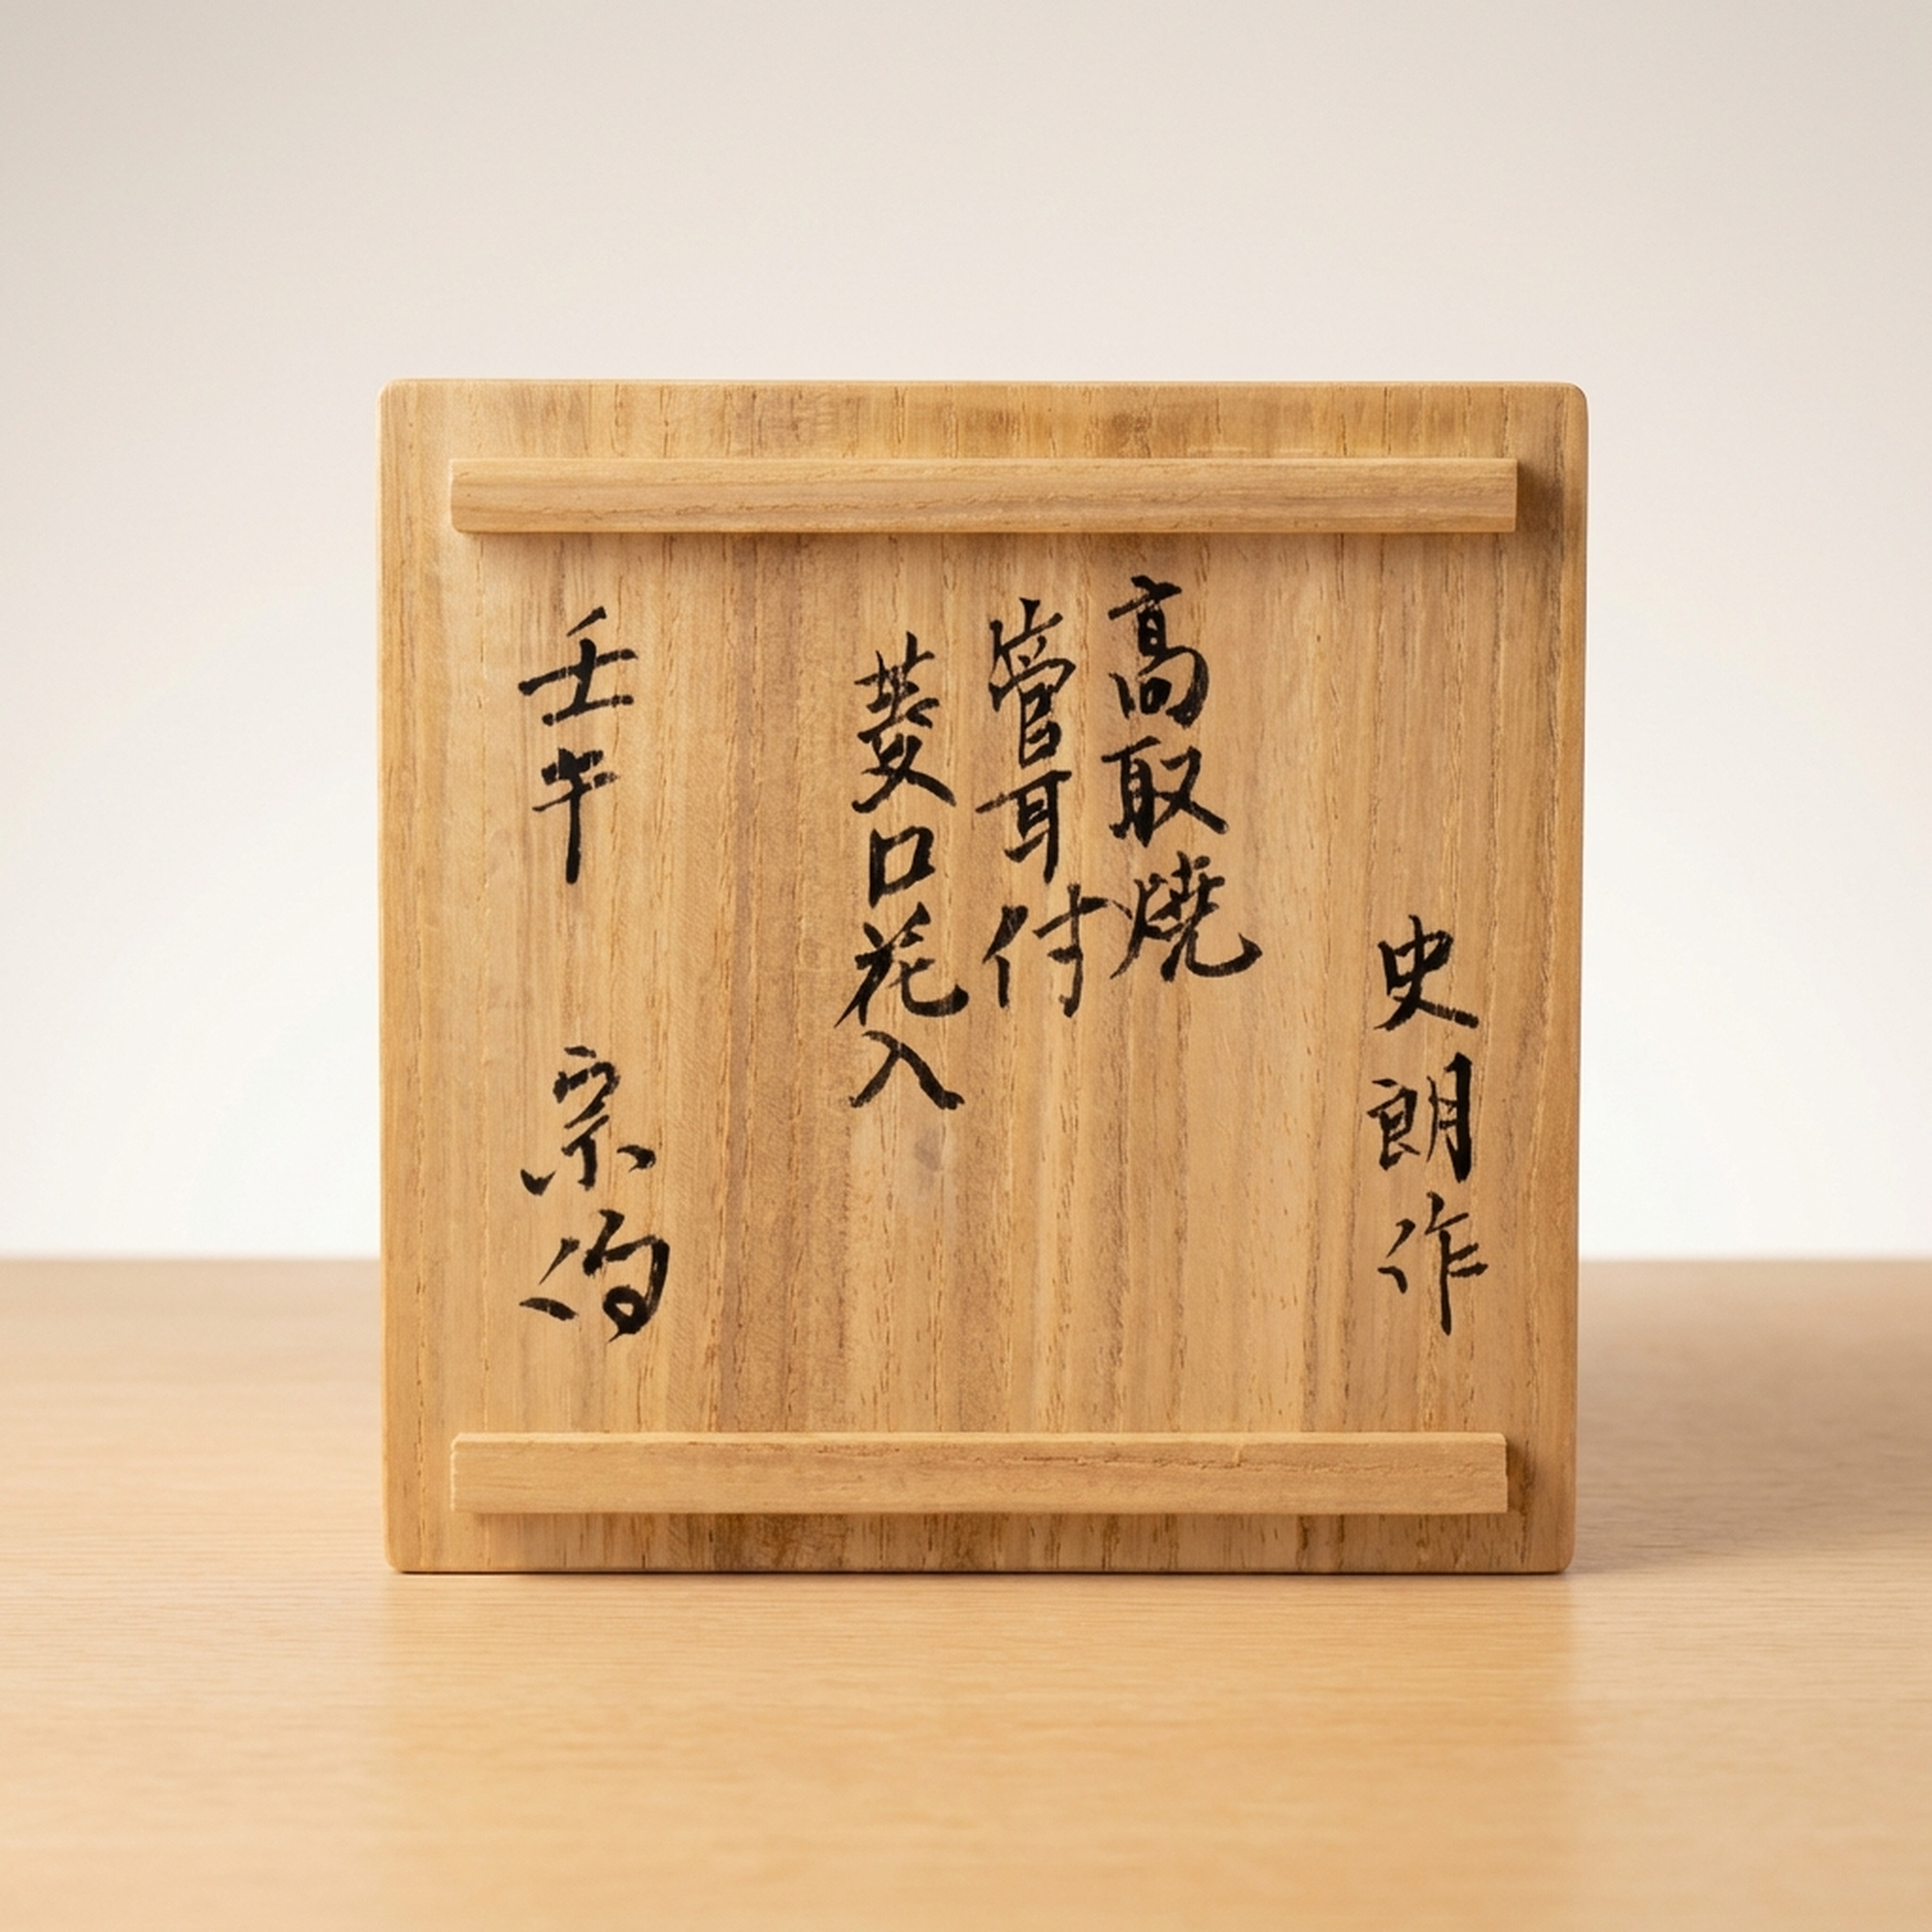 史朗作
高取焼
管耳付
菱口花入
壬午
宗